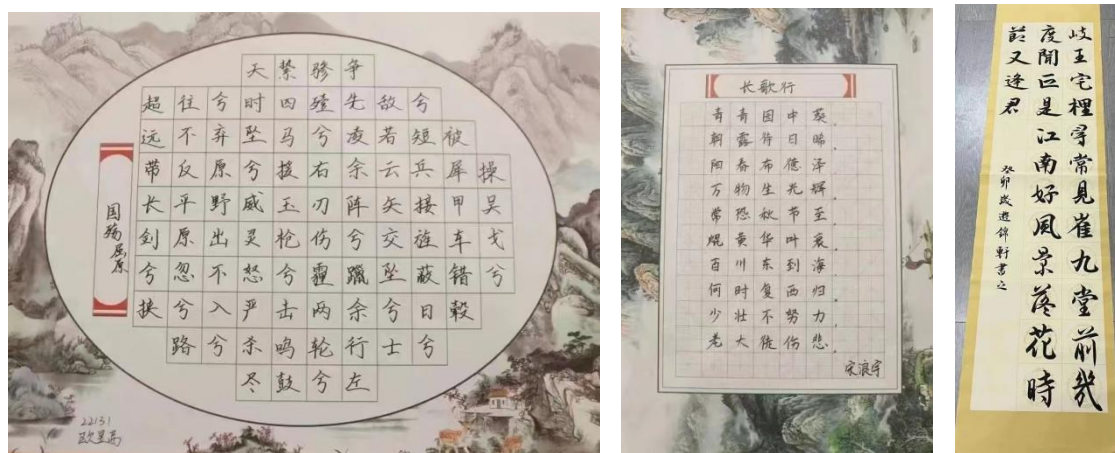 操吴戈兮
被犀甲车错毂
兮短兵接旌蔽日兮
敌若云矢交坠兮士
争先凌余阵兮躐余行左
骖殪兮右刃伤霾两轮兮
絷四马援玉枪兮击鸣鼓
天时坠兮威灵怒严杀尽
兮弃原野出不入兮
往不反平原忽兮路
超远带长剑兮挟
国殇屈原
22131
长歌行
青青园中葵,
朝露待日晞。
阳春布德泽
万物生光辉。
常恐秋节至
焜黄华叶衰。
百川东到海
何时复西归。
少壮不努力,
老大徒伤悲。
宋浪宇
岐王宅裡寻常見崔九堂前幾
度聞正是江南好風景落花時
節又逢君
癸卯歲遊錦軒書之